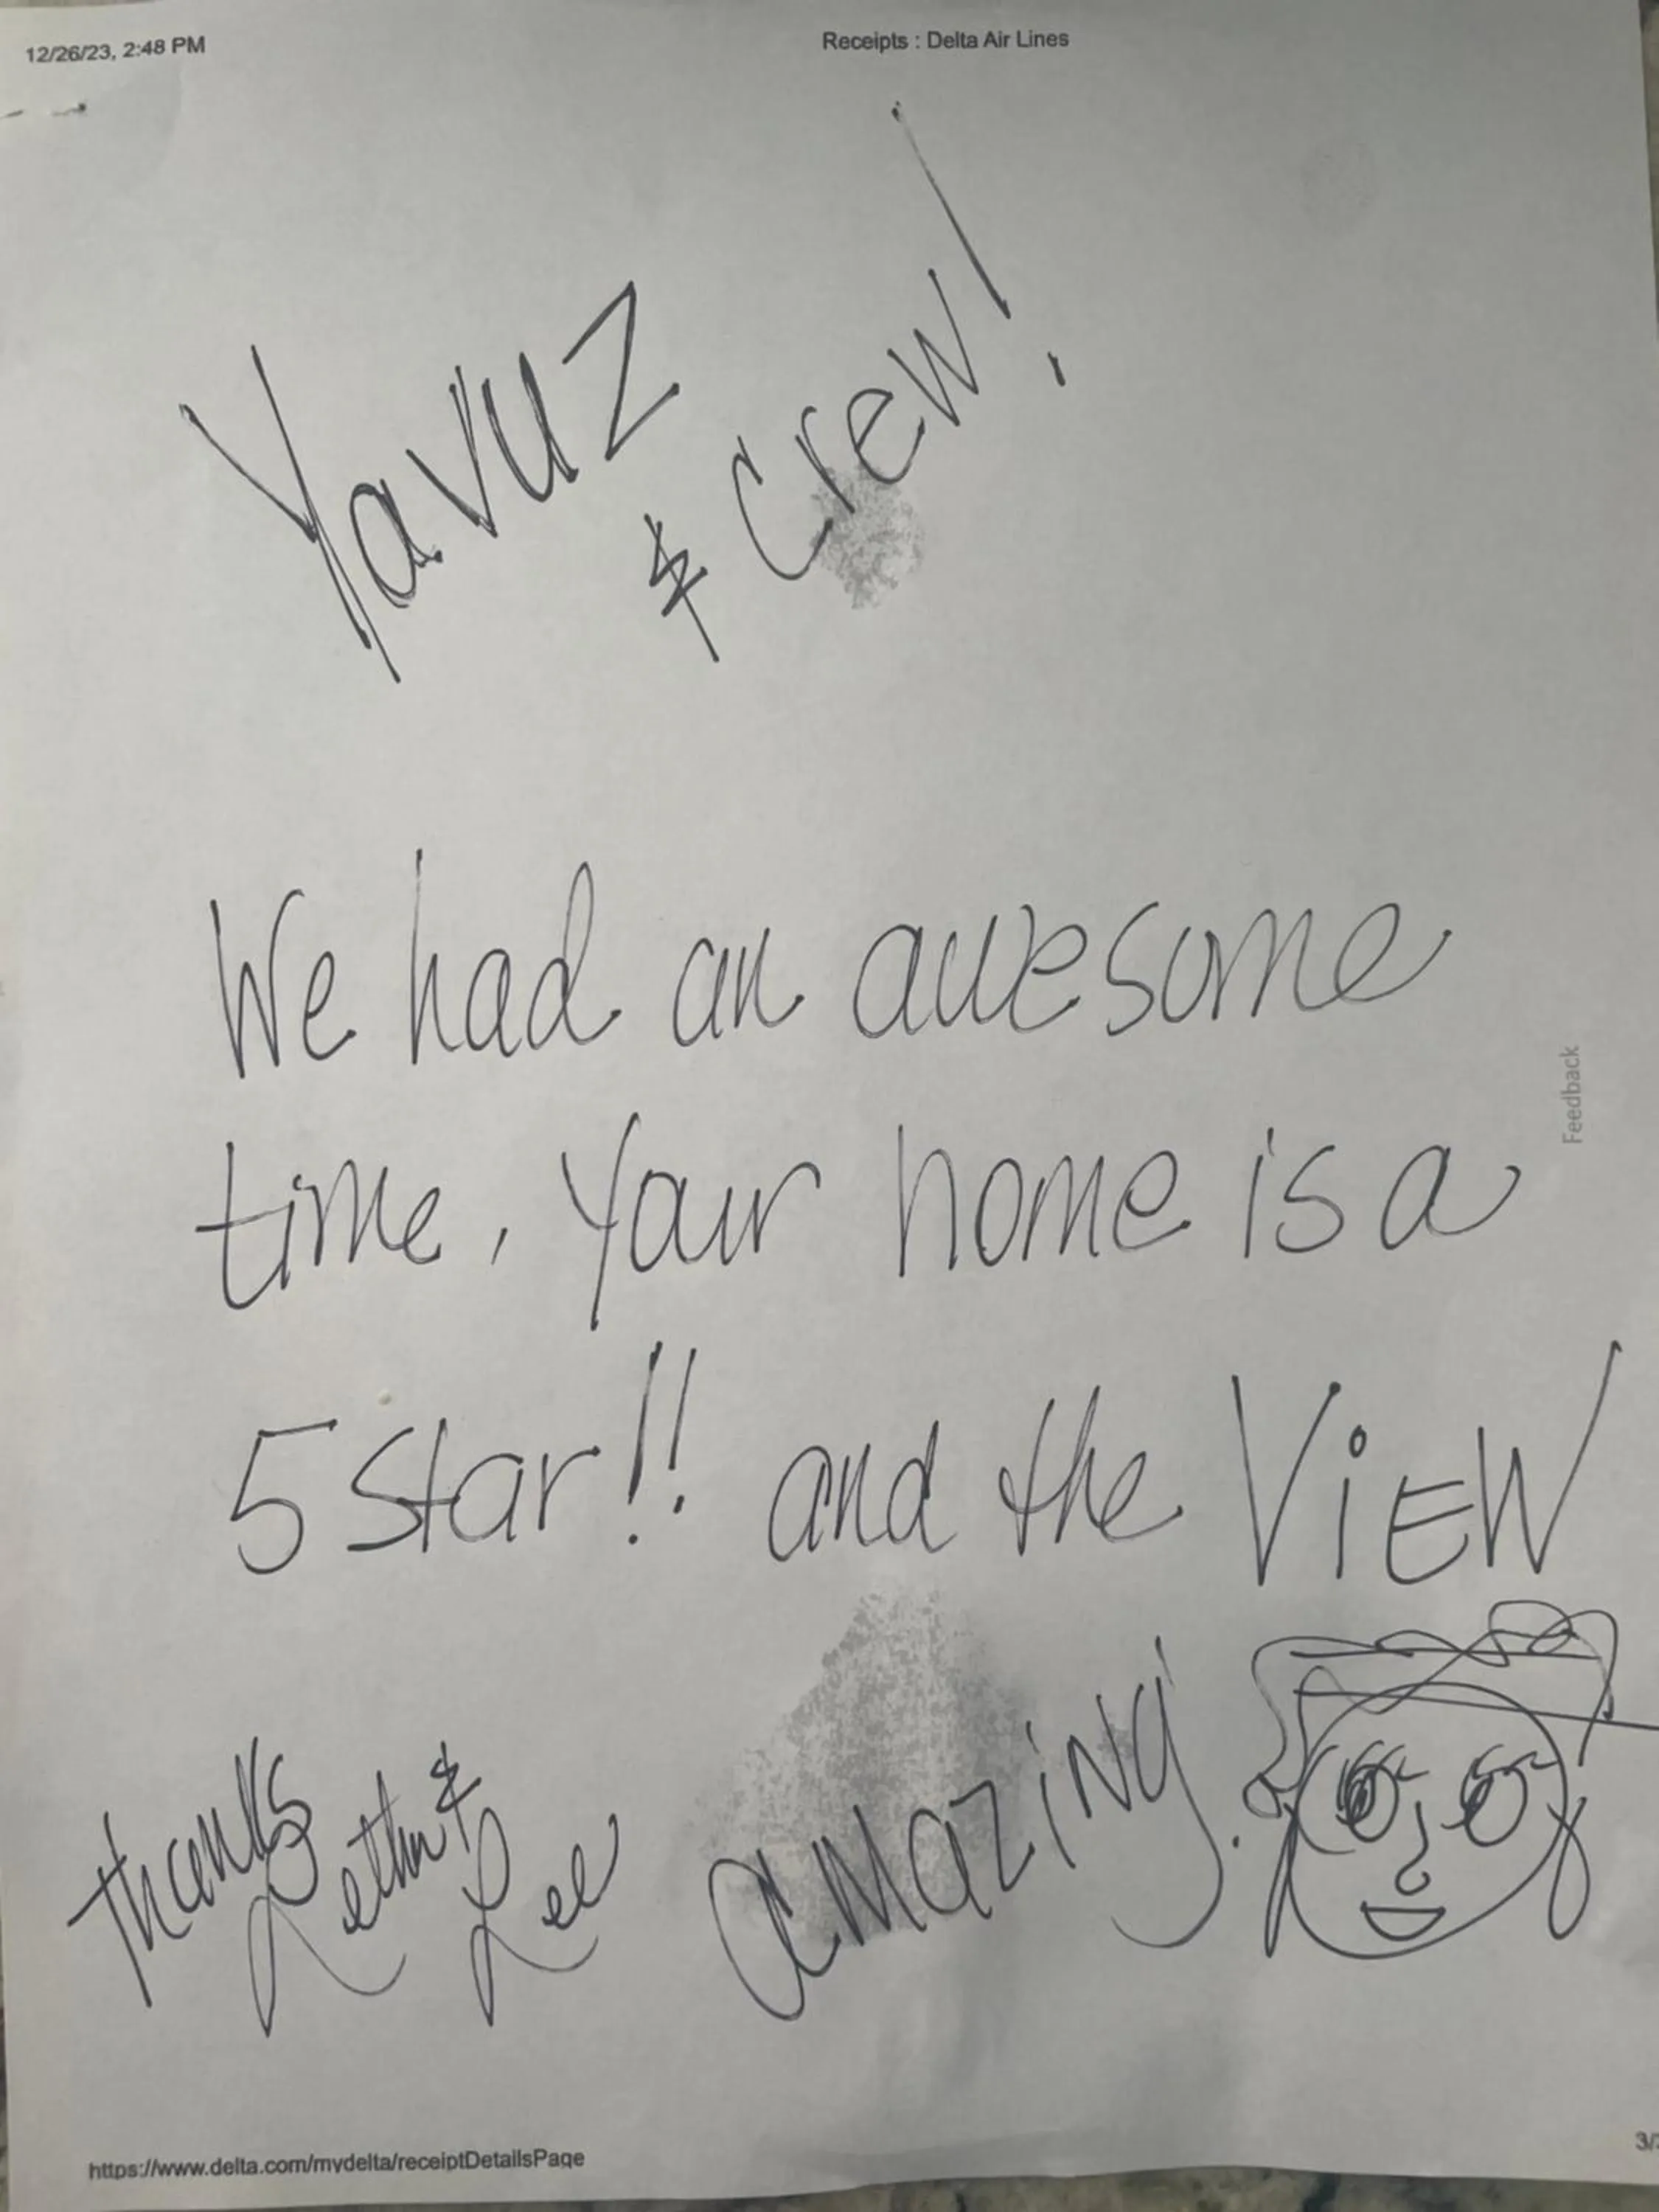 12/26/23, 2:48 PM
Receipts : Delta Air Lines
Yavuz
& Crew!
We had an awesome
time, Your home is a
Feedback
5 Star!! and the ViEW
amazing.
Thanks
& Lee
https://www.delta.com/mydelta/receiptDetailsPage